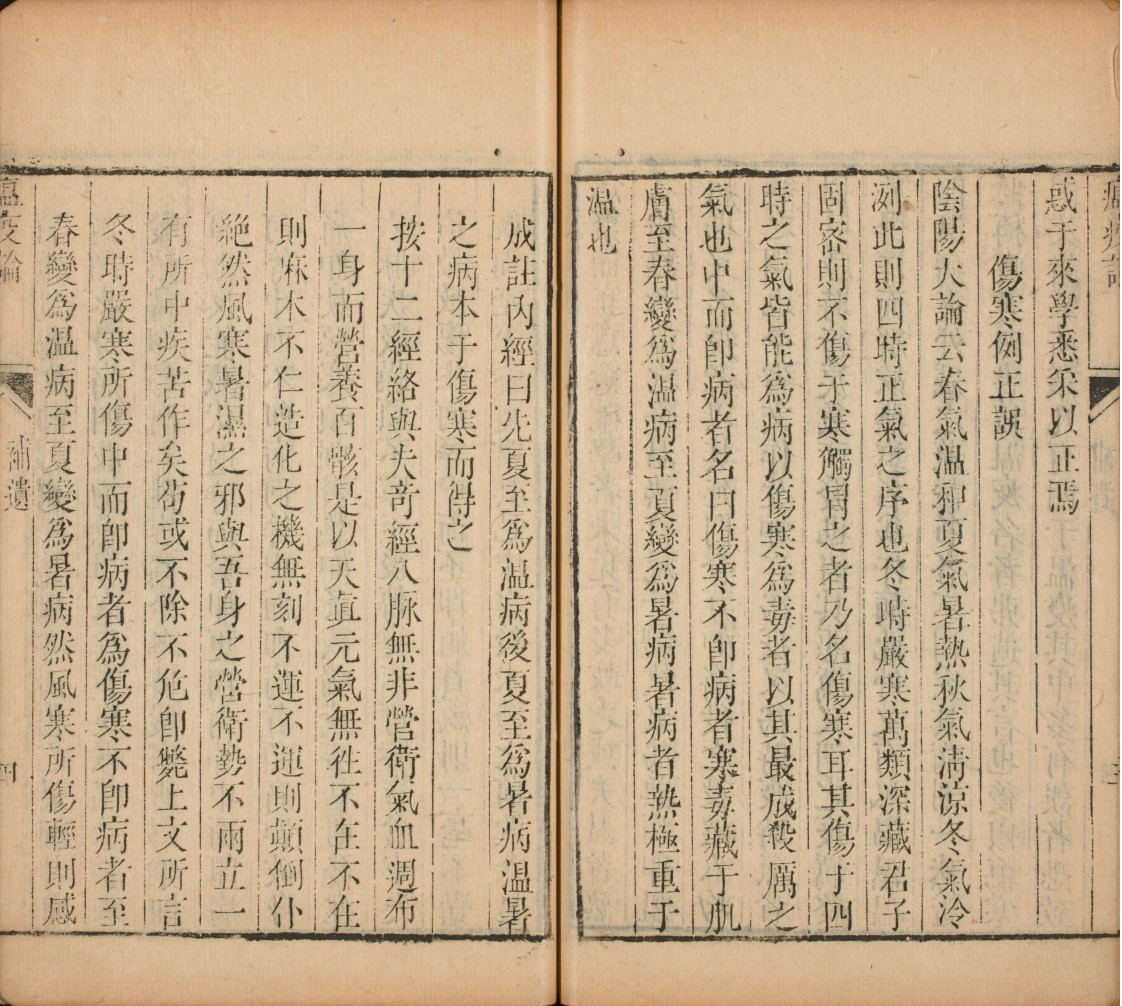 惑于來學悉采以正焉
傷寒例正誤
陰陽大論云春氣温和夏氣暑熱秋氣淸涼冬氣冷
洌此則四時正氣之序也冬時嚴寒萬類深藏君子
固密則不傷于寒觸冒之者乃名傷寒耳其傷于四
時之氣皆能爲病以傷寒爲毒者以其最成殺厲之
氣也中而卽病者名曰傷寒不卽病者寒毒藏于肌
膚至春變爲温病至夏變爲暑病暑病者熱極重于
温也
成註内經曰先夏至爲温病後夏至爲暑病温暑
之病本于傷寒而得之
按十二經絡與夫奇經八脉無非營衛氣血週布
一身而營養百骸是以天眞元氣無徃不在不在
則麻木不仁造化之機無刻不運不運則顛倒仆
絶然風寒暑濕之邪與吾身之營衛勢不兩立一
有所中疾苦作矣茍或不除不危卽斃上文所言
冬時嚴寒所傷中而卽病者爲傷寒不卽病者至
春變爲温病至夏變爲暑病然風寒所傷輕則感
瘟疫論
補遺
四